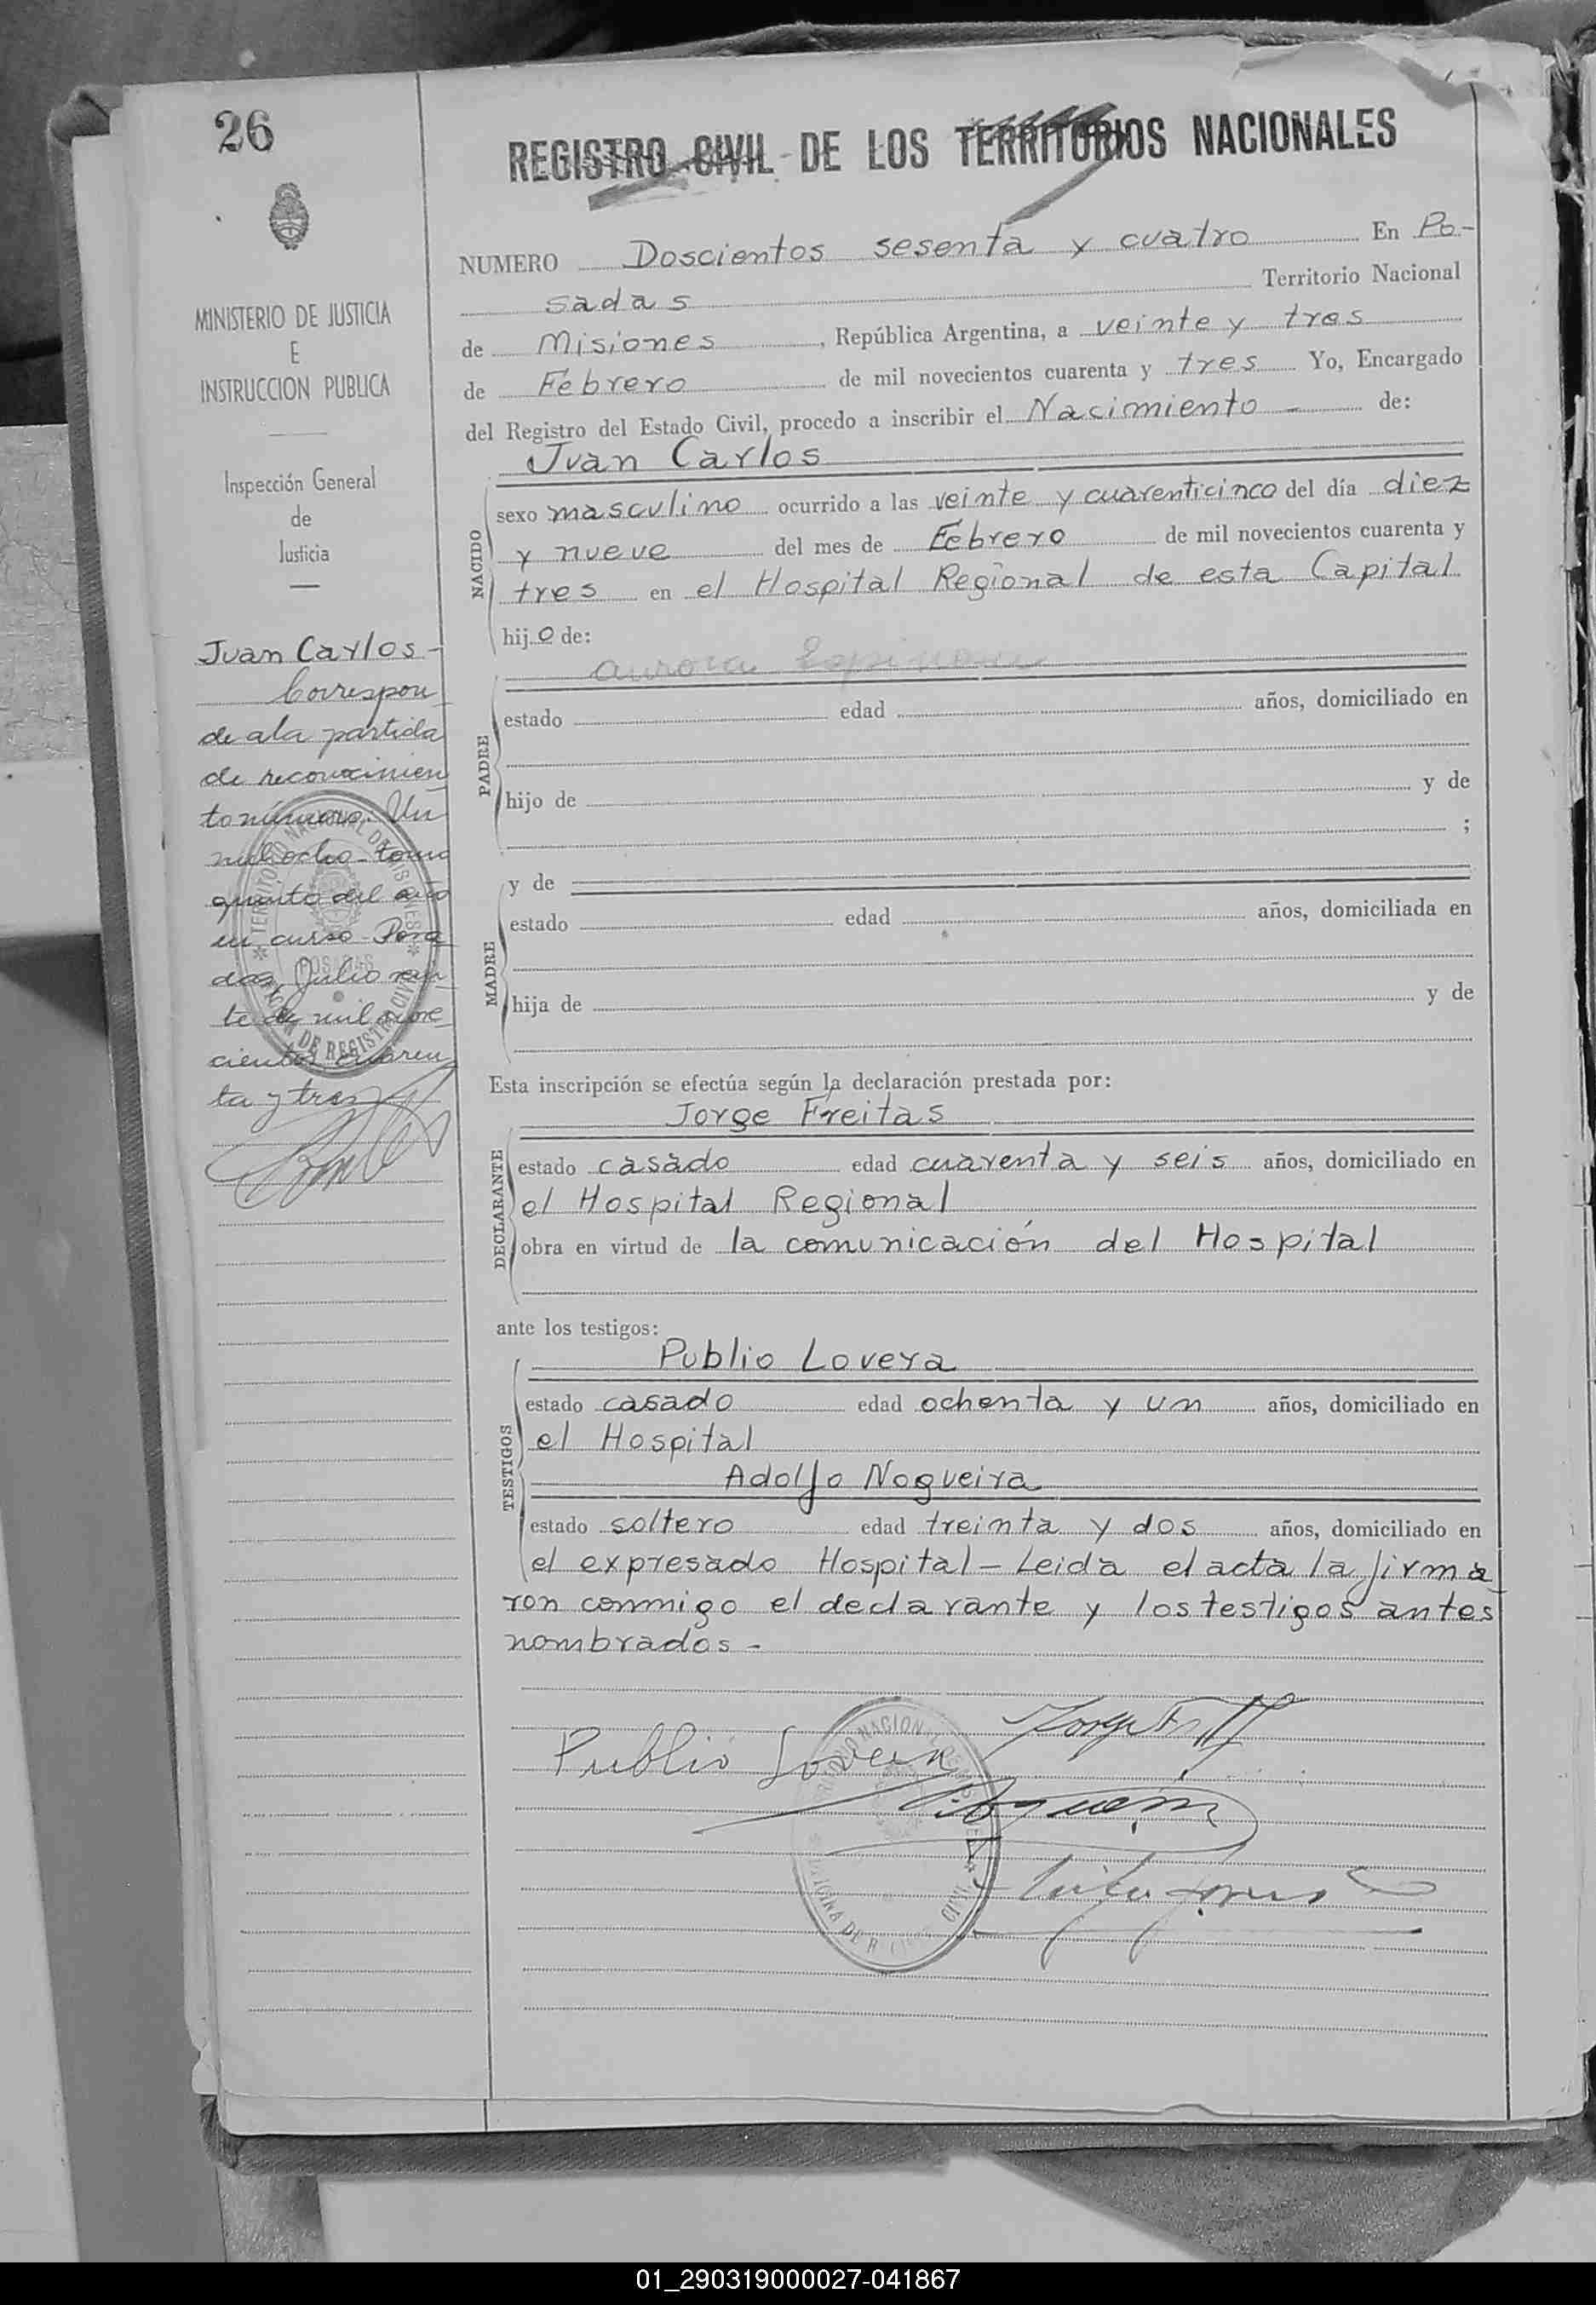 26
REGISTRO CIVIL DE LOS TERRITORIOS NACIONALES
MINISTERIO DE JUSTICIA
E
INSTRUCCION PUBLICA
Inspección General
de
Justicia
Juan Carlos-
Correspon
de a la partida
de reconocimien
to número. Un
mil ocho- tomo
quinto del año
en curso- Posa
das, Julio vein
te de mil nove
cientos cuaren
ta y tres
NUMERO Doscientos sesenta y cuatro En Po-
sadas Territorio Nacional
de Misiones, República Argentina, a veinte y tres
de Febrero de mil novecientos cuarenta y tres Yo, Encargado
del Registro del Estado Civil, procedo a inscribir el Nacimiento - de:
Juan Carlos
NACIDO
sexo masculino ocurrido a las veinte y cuarenticinco del día diez
y nueve del mes de Febrero de mil novecientos cuarenta y
tres en el Hospital Regional de esta Capital
hijo de:
Aurora
PADRE
estado edad años, domiciliado en
hijo de y de
;
y de
MADRE
estado edad años, domiciliada en
hija de y de
Esta inscripción se efectúa según la declaración prestada por:
Jorge Freitas
DECLARANTE
estado casado edad cuarenta y seis años, domiciliado en
el Hospital Regional
obra en virtud de la comunicación del Hospital
ante los testigos:
Publio Lovera
TESTIGOS
estado casado edad ochenta y un años, domiciliado en
el Hospital
Adolfo Nogueira
estado soltero edad treinta y dos años, domiciliado en
el expresado Hospital- Leida el acta la firma_
ron conmigo el declarante y los testigos antes
nombrados-
Publio Lovera
01_290319000027-041867